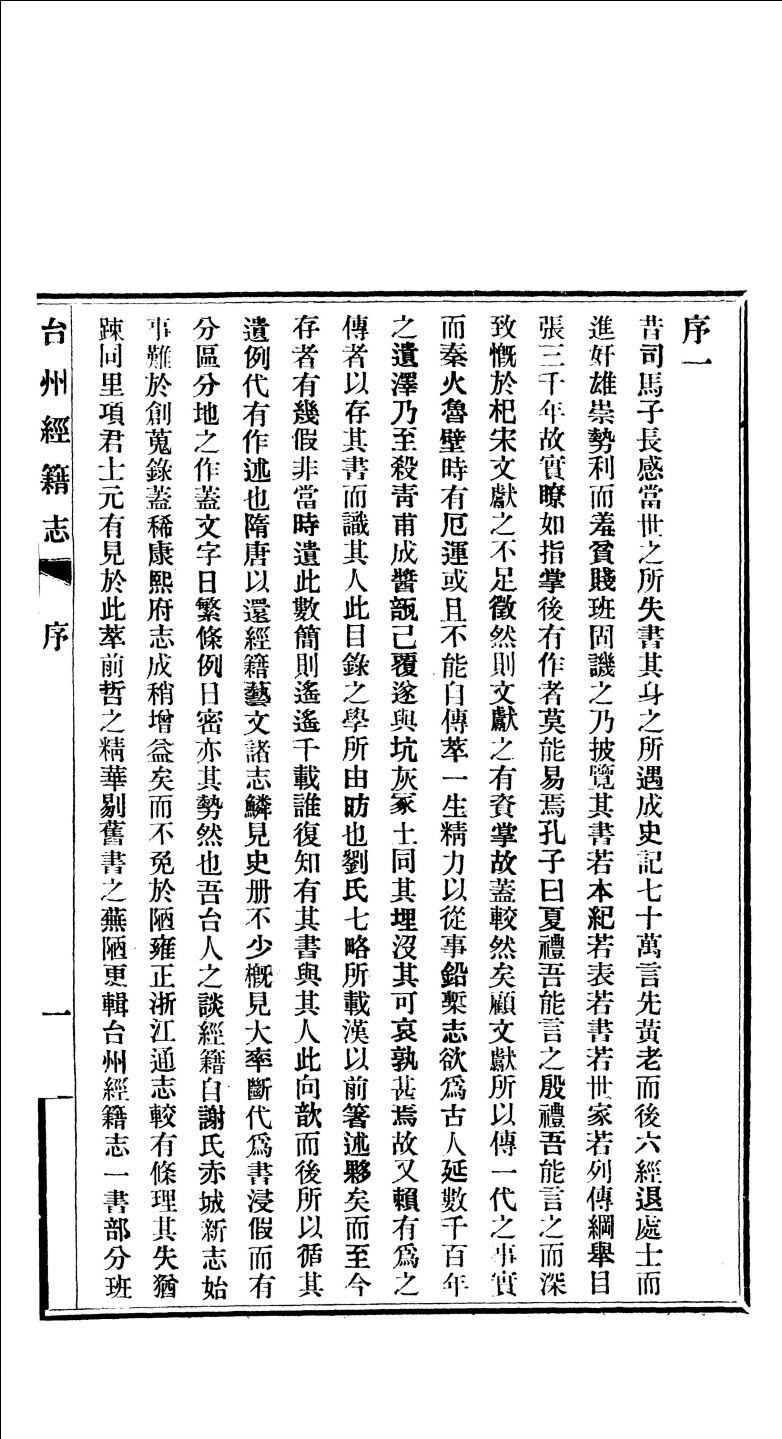 序一
昔司馬子長感當世之所失書其身之所遇成史記七十萬言先黃老而後六經退處士而
進奸雄崇勢利而羞貧賤班固譏之乃披覽其書若本紀若表若書若世家若列傳綱舉目
張三千年故實瞭如指掌後有作者莫能易焉孔子曰夏禮吾能言之殷禮吾能言之而深
致慨於杞宋文獻之不足徵然則文獻之有資掌故蓋較然矣顧文獻所以傳一代之事實
而秦火魯壁時有厄運或且不能自傳萃一生精力以從事鉛槧志欲爲古人延數千百年
之遺澤乃至殺青甫成醬瓿已覆遂與坑灰冢土同其埋沒其可哀孰甚焉故又賴有爲之
傳者以存其書而識其人此目錄之學所由昉也劉氏七略所載漢以前箸述夥矣而至今
存者有幾假非當時遺此數簡則遙遙千載誰復知有其書與其人此向歆而後所以循其
遺例代有作述也隋唐以還經籍藝文諸志鱗見史册不少槪見大率斷代爲書浸假而有
分區分地之作蓋文字日繁條例日密亦其勢然也吾台人之談經籍自謝氏赤城新志始
事難於創蒐錄蓋稀康熙府志成稍增益矣而不免於陋雍正浙江通志較有條理其失猶
踈同里項君士元有見於此萃前哲之精華剔舊書之蕪陋更輯台州經籍志一書部分班
台州經籍志 序 一